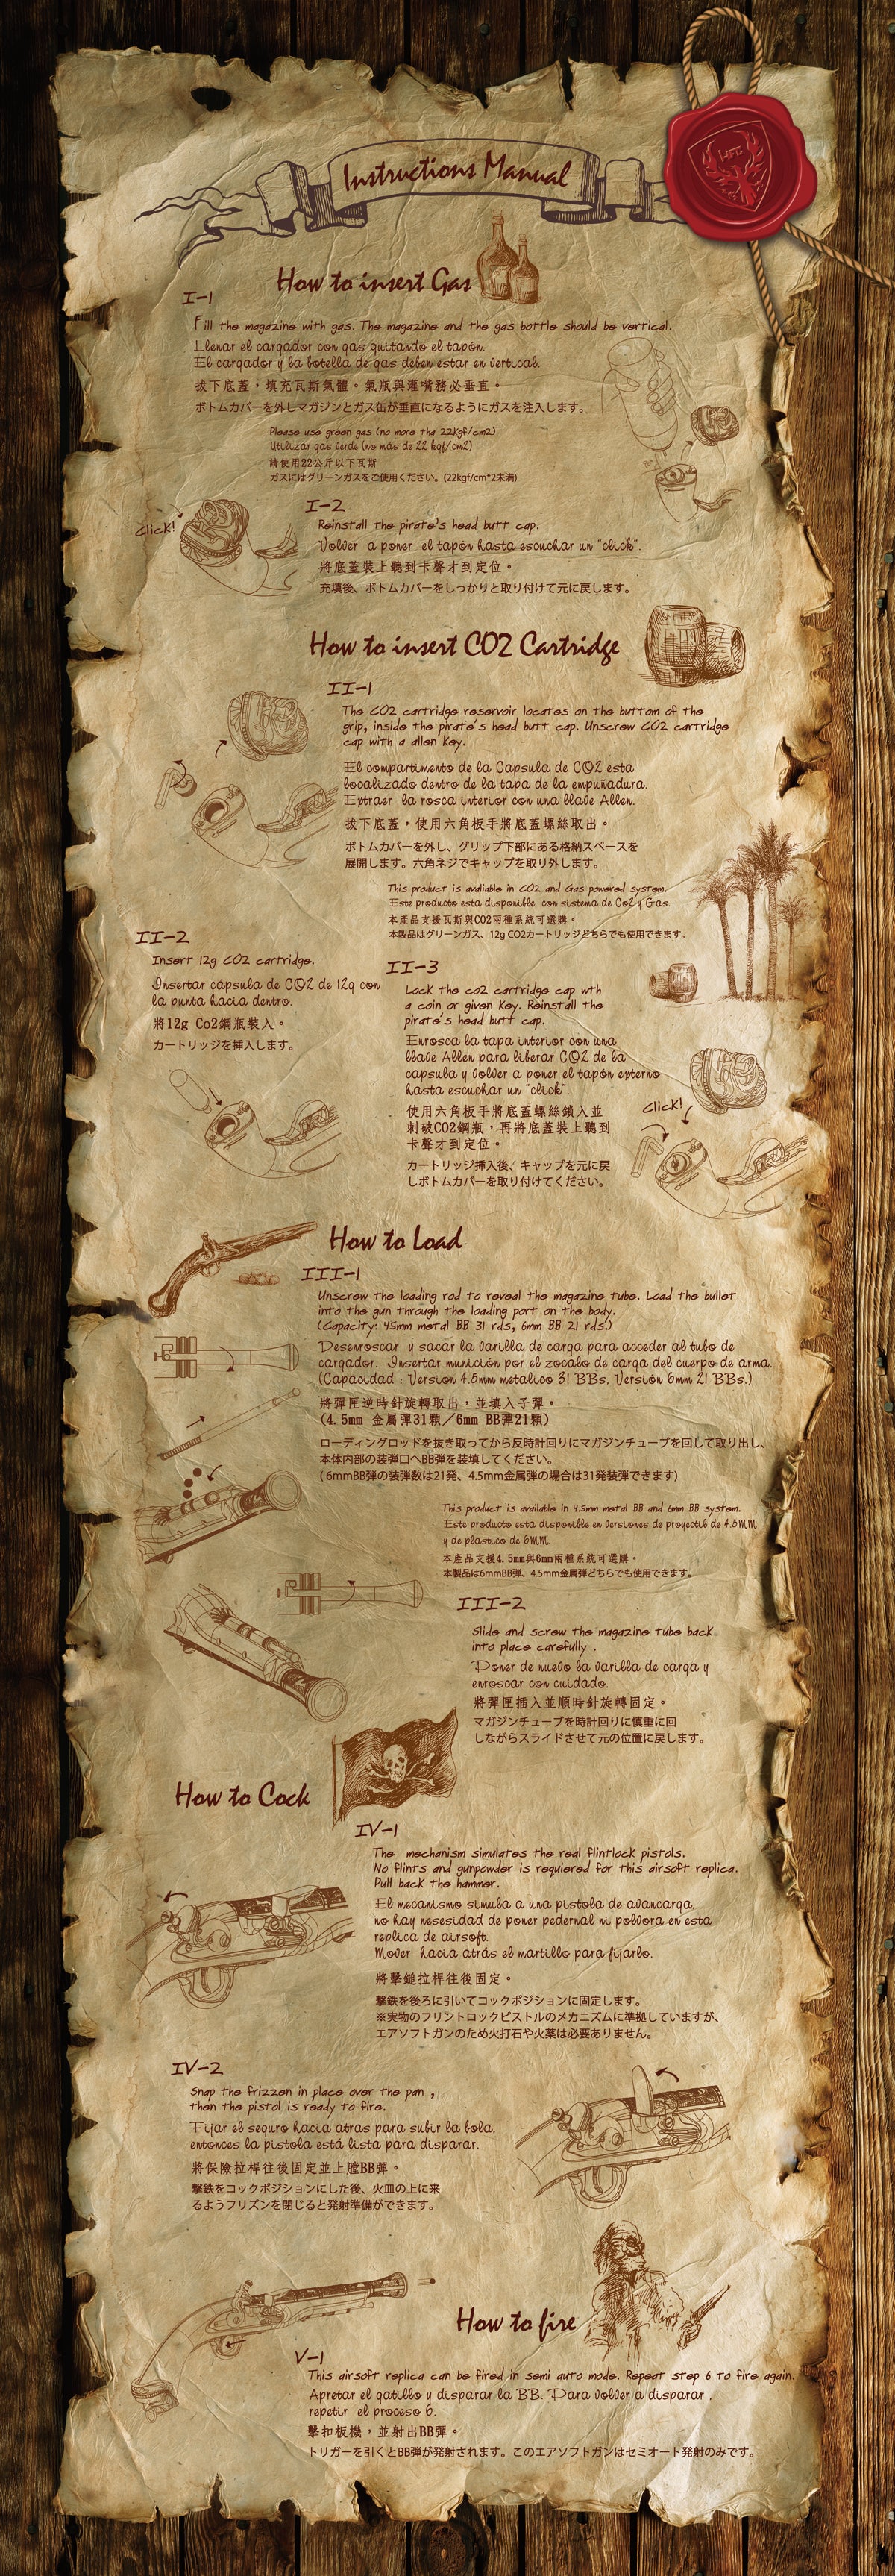 Instructions Manual
HFC
How to insert Gas
I-1
Fill the magazine with gas. The magazine and the gas bottle should be vertical.
Llenar el cargador con gas quitando el tapón.
El cargador y la botella de gas deben estar en vertical.
拔下底蓋，填充瓦斯氣體。氣瓶與灌嘴務必垂直。
ボトムカバーを外しマガジンとガス缶が垂直になるようにガスを注入します。
Please use green gas (no more tha 22Kgf/cm2)
Utilizar gas verde (no más de 22 kgf/cm2)
請使用22公斤以下瓦斯
ガスにはグリーンガスをご使用ください。(22kgf/cm*2未満)
Click!
I-2
Reinstall the pirate's head butt cap.
Volver a poner el tapón hasta escuchar un "click".
將底蓋裝上聽到卡聲才到定位。
充填後、ボトムカバーをしっかりと取り付けて元に戻します。
How to insert CO2 Cartridge
II-1
The CO2 cartridge reservoir locates on the buttom of the
grip, inside the pirate's head butt cap. Unscrew CO2 cartridge
cap with a allen key.
El compartimento de la Capsula de CO2 esta
localizado dentro de la tapa de la empuñadura.
Extraer la rosca interior con una llave Allen.
拔下底蓋，使用六角板手將底蓋螺絲取出。
ボトムカバーを外し、グリップ下部にある格納スペースを
展開します。六角ネジでキャップを取り外します。
This product is avaliable in CO2 and Gas powered system.
Este producto esta disponible con sistema de Co2 y Gas.
本產品支援瓦斯與CO2兩種系統可選購。
本製品はグリーンガス、12g CO2カートリッジどちらでも使用できます。
II-2
Insert 12g CO2 cartridge.
Insertar cápsula de CO2 de 12g con
la punta hacia dentro.
將12g Co2鋼瓶裝入。
カートリッジを挿入します。
II-3
Lock the co2 cartridge cap wth
a coin or given key. Reinstall the
pirate's head butt cap.
Enrosca la tapa interior con una
llave Allen para liberar CO2 de la
capsula y volver a poner el tapón externo
hasta escuchar un "click".
使用六角板手將底蓋螺絲鎖入並
刺破CO2鋼瓶，再將底蓋裝上聽到
卡聲才到定位。
カートリッジ挿入後、キャップを元に戻
しボトムカバーを取り付けてください。
Click!
How to Load
III-1
Unscrew the loading rod to reveal the magazine tube. Load the bullet
into the gun through the loading port on the body.
(Capacity: 45mm metal BB 31 rds, 6mm BB 21 rds.)
Desenroscar y sacar la varilla de carga para acceder al tubo de
cargador. Insertar munición por el zocalo de carga del cuerpo de arma.
(Capacidad : Version 4.5mm metalico 31 BBs. Versión 6mm 21 BBs.)
將彈匣逆時針旋轉取出，並填入子彈。
(4.5mm 金屬彈31顆／6mm BB彈21顆)
ローディングロッドを抜き取ってから反時計回りにマガジンチューブを回して取り出し、
本体内部の装弾口へBB弾を装填してください。
( 6mmBB弾の装弾数は21発、4.5mm金属弾の場合は31発装弾できます)
This product is available in 4.5mm metal BB and 6mm BB system.
Este producto esta disponible en versiones de proyectil de 4.5MM
y de plastico de 6MM.
本產品支援4.5mm與6mm兩種系統可選購。
本製品は6mmBB弾、4.5mm金属弾どちらでも使用できます。
III-2
Slide and screw the magazine tube back
into place carefully .
Poner de nuevo la varilla de carga y
enroscar con cuidado.
將彈匣插入並順時針旋轉固定。
マガジンチューブを時計回りに慎重に回
しながらスライドさせて元の位置に戻します。
How to Cock
IV-1
The mechanism simulates the real flintlock pistols.
No flints and gunpowder is requiered for this airsoft replica.
Pull back the hammer.
El mecanismo simula a una pistola de avancarga,
no hay nesesidad de poner pedernal ni polvora en esta
replica de airsoft.
Mover hacia atrás el martillo para fijarlo.
將擊鎚拉桿往後固定。
撃鉄を後ろに引いてコックポジションに固定します。
※実物のフリントロックピストルのメカニズムに準拠していますが、
エアソフトガンのため火打石や火薬は必要ありません。
IV-2
Snap the frizzen in place over the pan ,
then the pistol is ready to fire.
Fijar el seguro hacia atras para subir la bola,
entonces la pistola está lista para disparar.
將保險拉桿往後固定並上膛BB彈。
撃鉄をコックポジションにした後、火皿の上に来
るようフリズンを閉じると発射準備ができます。
How to fire
V-1
This airsoft replica can be fired in semi auto mode. Repeat step 6 to fire again.
Apretar el gatillo y disparar la BB. Para volver a disparar ,
repetir el proceso 6.
擊扣板機，並射出BB彈。
トリガーを引くとBB弾が発射されます。このエアソフトガンはセミオート発射のみです。